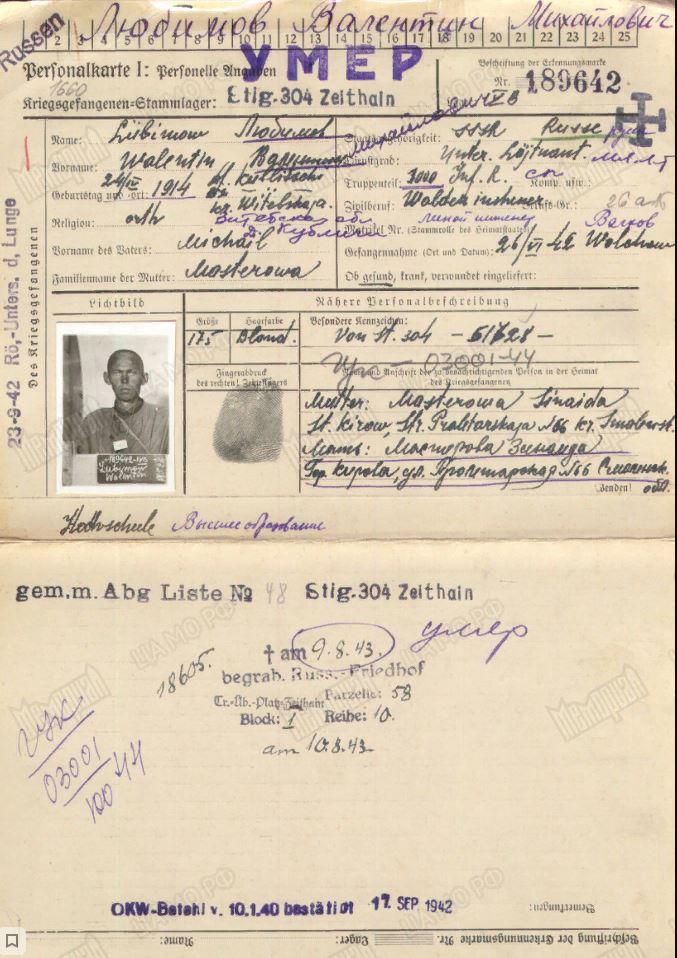 Russen
Любимов Валентин Михайлович
2 3 4 5 6 7 8 9 10 11 12 13 14 15 16 17 18 19 20 21 22 23 24 25
УМЕР
Personalkarte I: Personelle Angaben
Beschriftung der Erkennungsmarke
1660
Nr. 189642
Kriegsgefangenen-Stammlager: Stlg. 304 Zeithain
IV B
Name: Lübimow Любимов
Staatsangehörigkeit: SSSR Russe
Михайлович
Vorname: Walentin Валентин
Dienstgrad: Unter. Löjtnant.
Geburtstag und -ort: 24/IV 1914
Truppenteil: 3000 Inf. R. Komp. usw.:
kr. Witebskaja.
Zivilberuf: Berufs-Gr.:
Religion: orth
Matrikel Nr. (Stammrolle des Heimatstaates):
Vorname des Vaters: Michail
Gefangennahme (Ort und Datum): 26/VI 42 Wolchow
Familienname der Mutter: Masterowa
Ob gesund, krank, verwundet eingeliefert:
Des Kriegsgefangenen
23-9-42 Rö,-Unters. d, Lunge
Lichtbild
Nähere Personalbeschreibung
Größe Haarfarbe Besondere Kennzeichen:
175 Blond. Von St. 304 - 61728 -
03001-44
Fingerabdruck
des rechten! Zeigefingers
Name und Anschrift der zu benachrichtigenden Person in der Heimat
des Kriegsgefangenen
Mutter: Masterowa Sinaida
St. Kirow, Str. Proletarskaja No 66 kr. Smolensk.
Мать: Мастерова Зинаида
Гор. Кирова, ул. Пролетарская No 66 Смоленск.
обл.
Wenden!
189642 IVB
Lübimow
Walentin
Hochschule Высшее образование
gem. m. Abg Liste No 48 Stlg. 304 Zeithain
умер
† am 9.8.43.
18605.
begrab. Russ.-Friedhof
Tr.-Üb.-Platz-Zeithain Parzelle: 58
Block: 1 Reihe: 10.
am 10.8.43.
03001
100 44
OKW-Befehl v. 10.1.40 bestätigt 17. SEP 1942
Bemerkungen:
Beschriftung der Erkennungsmarke Nr.
Lager:
Name:
ЦА МО РФ